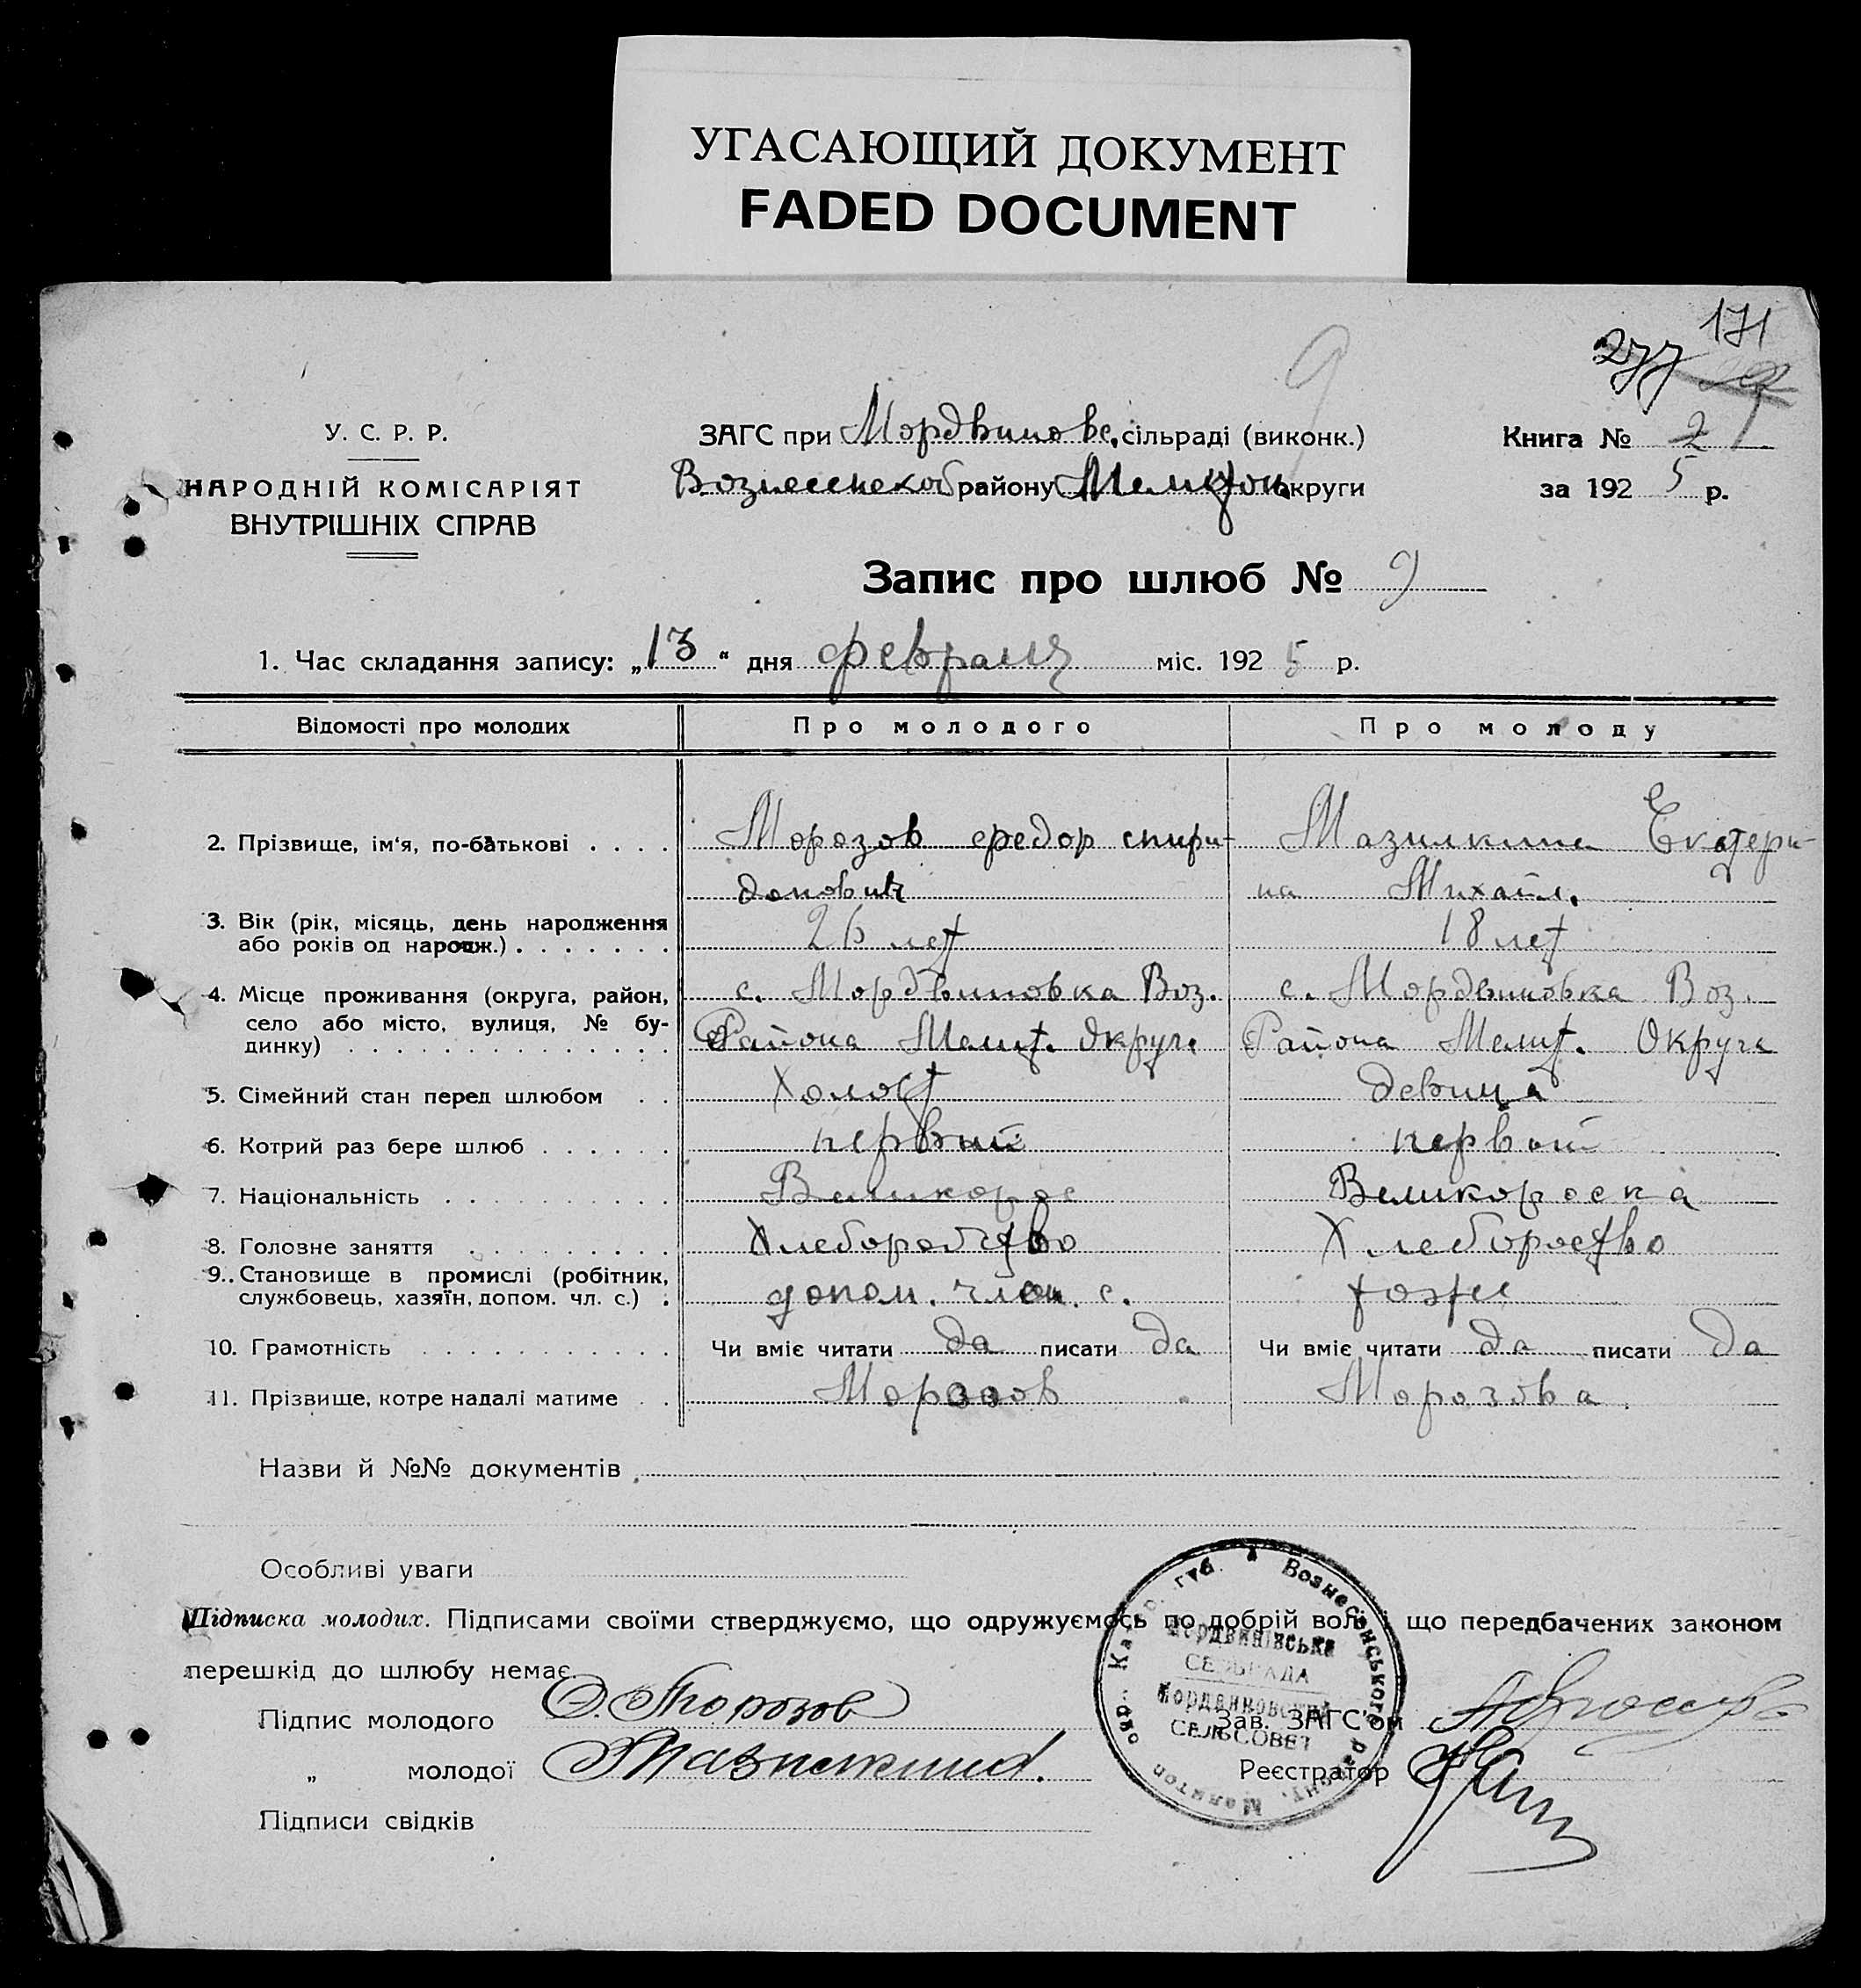 УГАСАЮЩИЙ ДОКУМЕНТ
FADED DOCUMENT
171
277
9
У. С. Р. Р.
НАРОДНІЙ КОМІСАРІЯТ
ВНУТРІШНІХ СПРАВ
ЗАГС при Мордвиновс. сільраді (виконк.)
Вознесенской району Мелитоп. округи
Книга № 2
за 1925 р.
Запис про шлюб № 9
1. Час складання запису: „13“ дня февраля міс. 1925 р.
Відомості про молодих Про молодого Про молоду
2. Прізвище, ім'я, по-батькові . . . . Морозов Федор Спири- Мазилкина Екатери-
донович на Михайл.
3. Вік (рік, місяць, день народження
або років од народж.) . . . . . . . 26 лет 18 лет
4. Місце проживання (округа, район, с. Мордвиновка Воз. с. Мордвиновка Воз.
село або місто, вулиця, № бу-
динку) . . . . . . . . . . . . . . Района Мелит. Округа Района Мелит. Округа
5. Сімейний стан перед шлюбом . . Холост девица
6. Котрий раз бере шлюб . . . . . . первый первый
7. Національність . . . . . . . . . . Великорос Великороска
8. Головне заняття . . . . . . . . . Хлеборобство Хлеборобство
9. Становище в промислі (робітник,
службовець, хазяїн, допом. чл. с.) . допом. член. с. тоже
10. Грамотність . . . . . . . . . . . Чи вміє читати да писати да Чи вміє читати да писати да
11. Прізвище, котре надалі матиме . . Морозов Морозова
Назви й №№ документів
Особливі уваги
Підписка молодих. Підписами своїми стверджуємо, що одружуємось по добрій волі й що передбачених законом
перешкід до шлюбу немає.
Підпис молодого Ф. Морозов
Зав. ЗАГС'ом
„ молодої Мазилкина.
Реєстратор
Підписи свідків
Вознесенського рай
Мелитоп
Кат губ.
Мордвинівська
СЕЛЬРАДА
Мордвиновский
СЕЛЬСОВЕТ